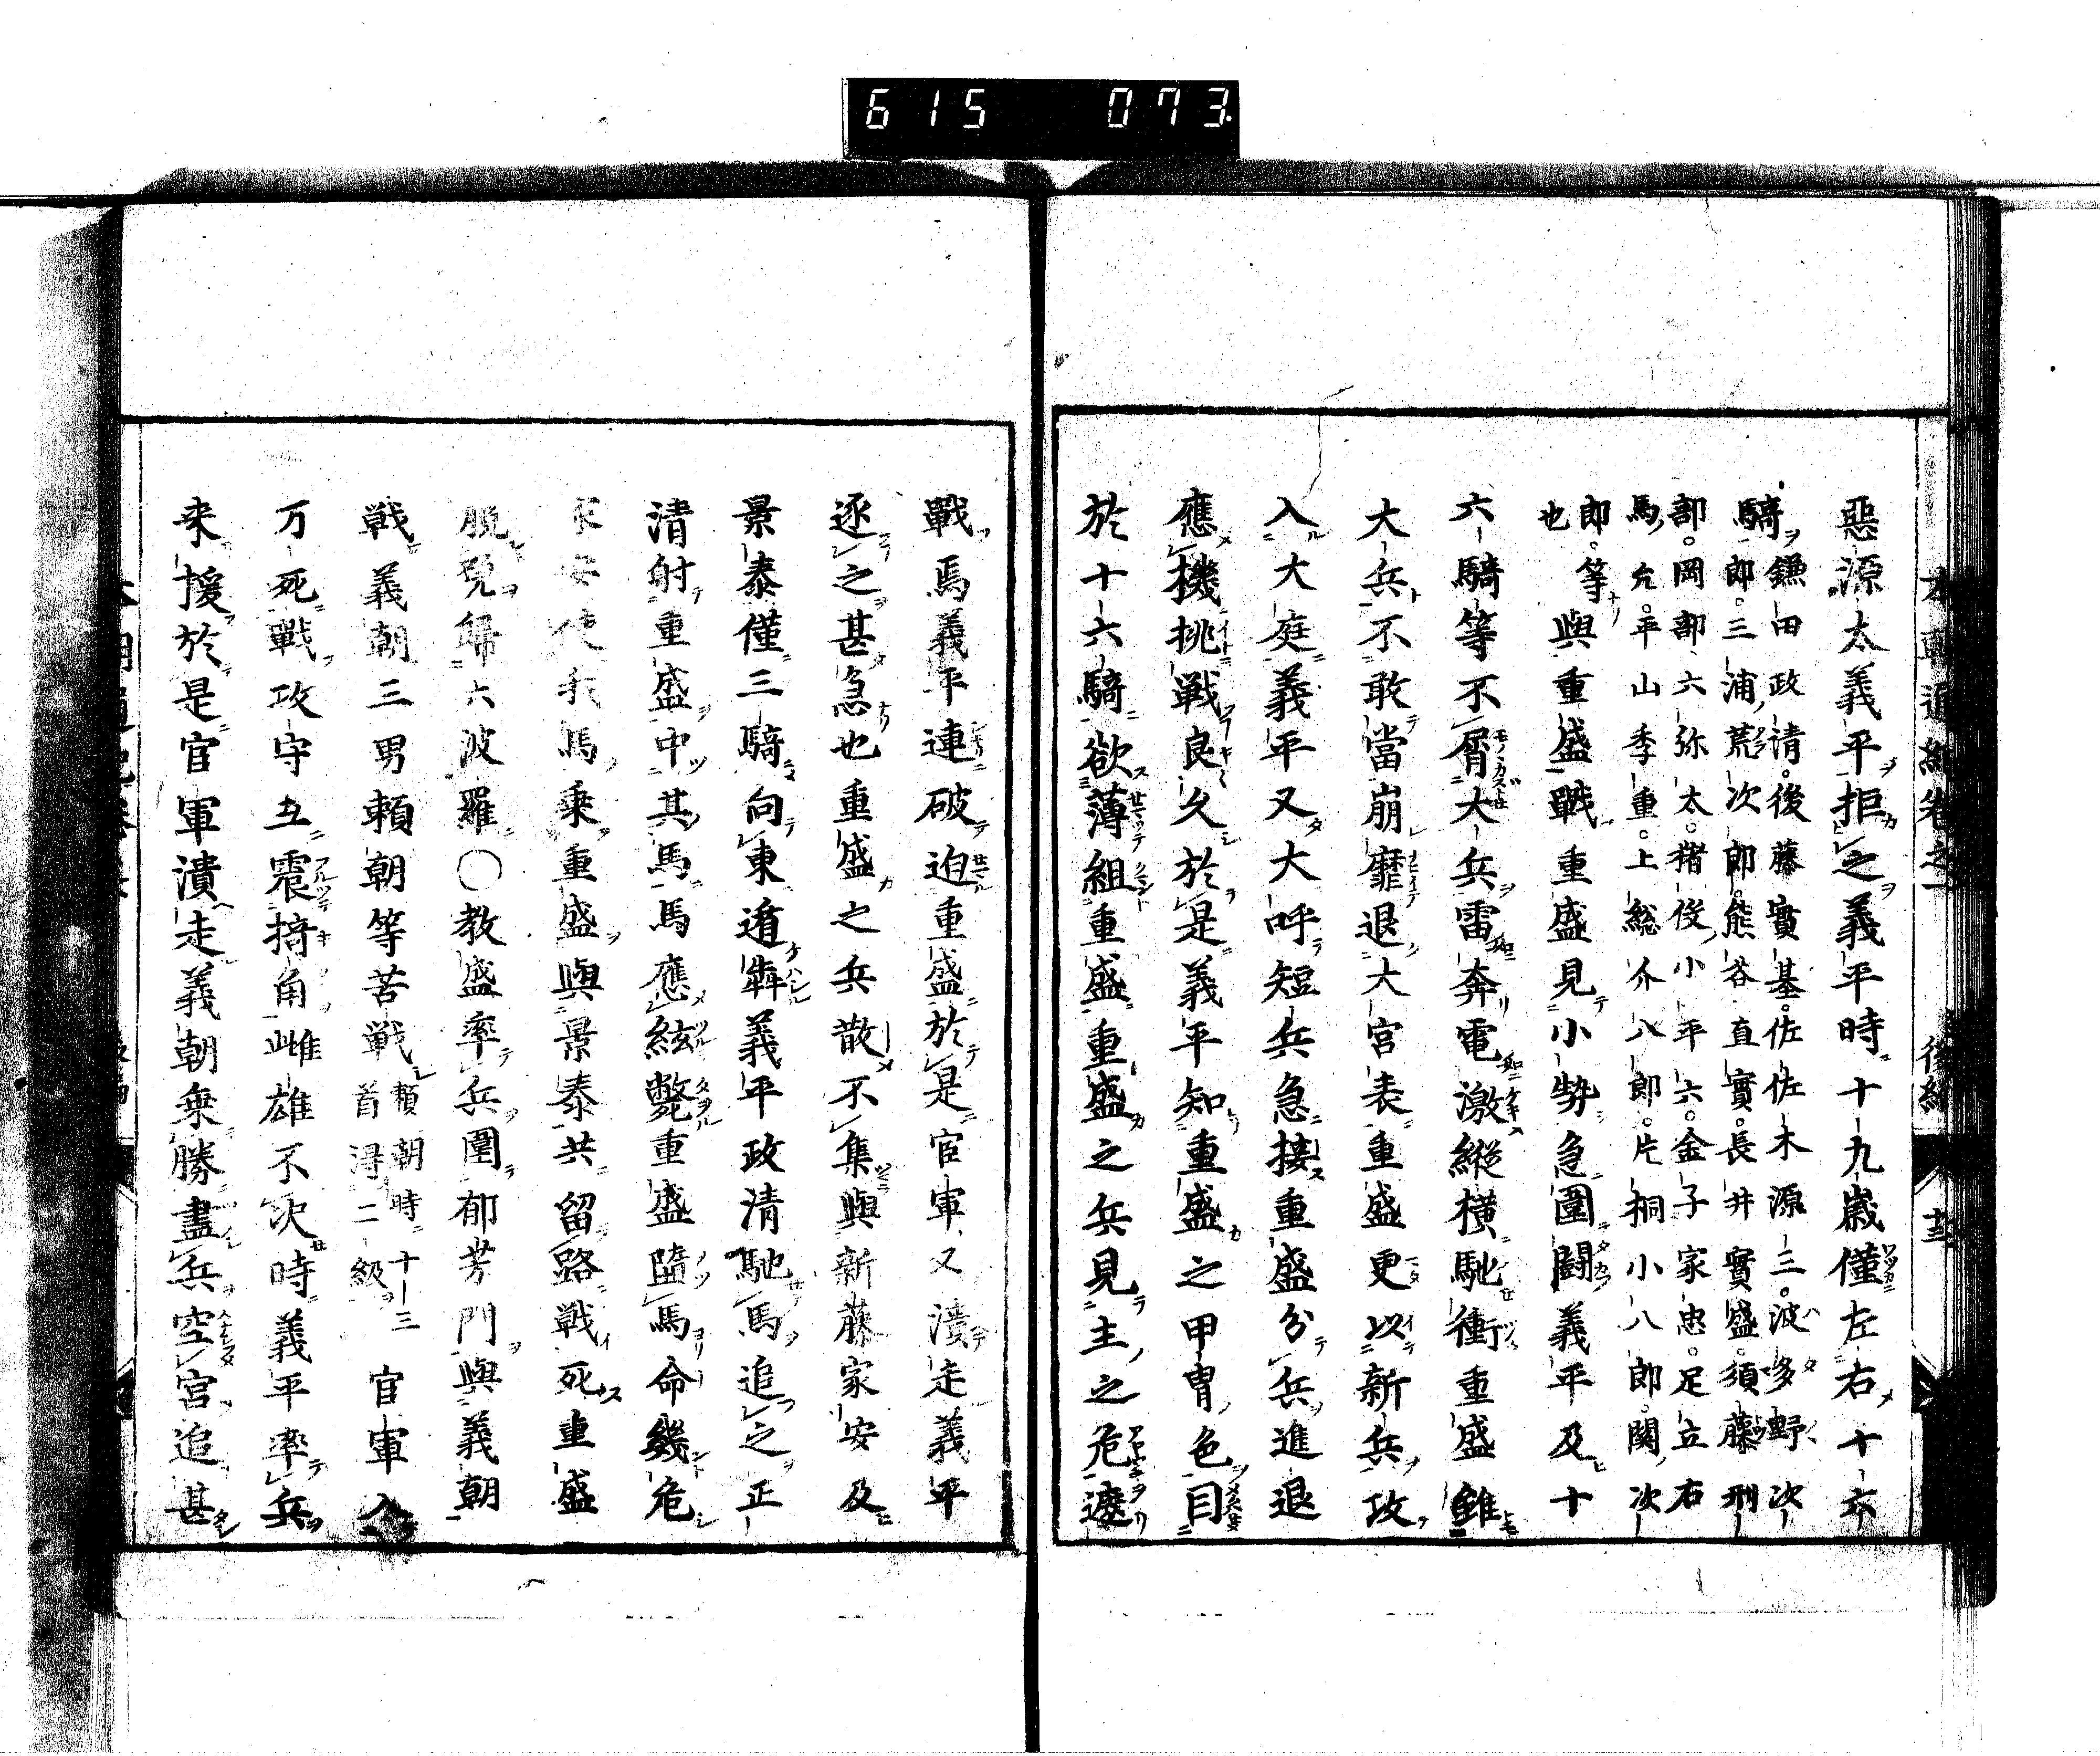 615 073
惡源太義平拒之義平時十九歲僅左右十六
騎鎌田政清。後藤實基。佐佐木源三。波多野次
郎。三浦荒次郎。熊谷直實。長井實盛。須藤刑
部。岡部六弥太。猪俣小平六。金子家忠。足立右
馬允。平山季重。上総介八郎。片桐小八郎。関次
郎。等
也
與重盛戰重盛見小勢急圍闘義平及十
六騎等不屑大兵雷奔電激縱橫馳衝重盛雖
大兵不敢當崩靡退大宮表重盛更以新兵攻
入大庭義平又大呼短兵急接重盛分兵進退
應機挑戦良久於是義平知重盛之甲冑色目
於十六騎欲薄組重盛重盛之兵見主之危遽
戰焉義平連破迫重盛於是官軍又潰走義平
逐之甚急也重盛之兵散不集與新藤家安及
景泰僅三騎向東遁犇義平政清馳馬追之正
清射重盛中其馬馬應絃斃重盛隨馬命幾危
家安使我馬乘重盛與景泰共留路戦死重盛
脱免歸六波羅○教盛率兵圍郁芳門與義朝
戦義朝三男頼朝等苦戦
頼朝時十三
首得二級
官軍入
万死戰攻守互震掎角雌雄不决時義平率兵
来援於是官軍潰走義朝乗勝盡兵空宮追甚